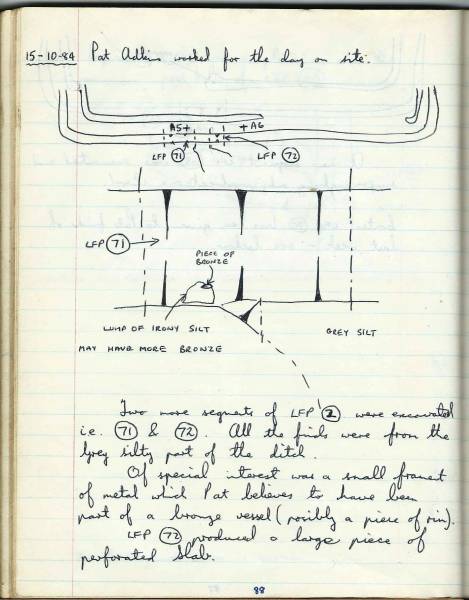 15-10-84 Pat Adkins worked for the day on site.
A5+ +A6
LFP 71 LFP 72
LFP 71
PIECE OF
BRONZE
LUMP OF IRONY SILT
MAY HAVE MORE BRONZE
GREY SILT
Two more segments of LFP 2 were excavated
i.e. 71 & 72. All the finds were from the
grey silty part of the ditch.
Of special interest was a small framet
of metal which Pat believes to have been
part of a bronze vessel (posibly a piece of rim).
LFP 72 produced a large piece of
perforated slab.
88